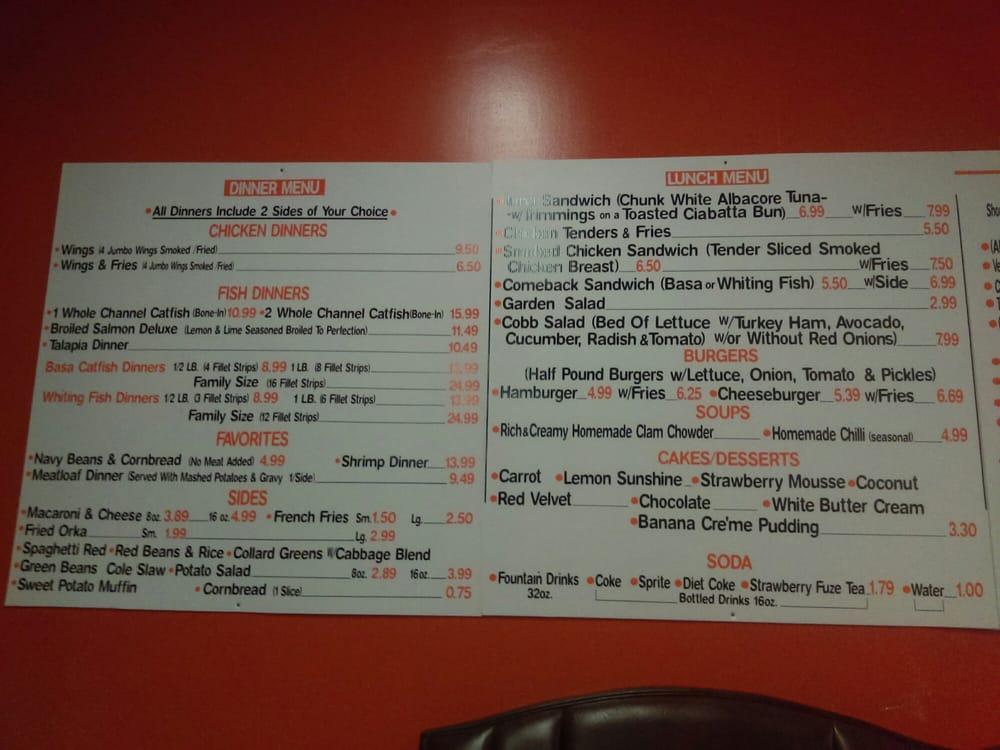 DINNER MENU
•All Dinners Include 2 Sides of Your Choice•
CHICKEN DINNERS
•Wings (4 Jumbo Wings Smoked /Fried) 9.50
•Wings & Fries (4 Jumbo Wings Smoked /Fried) 6.50
FISH DINNERS
•1 Whole Channel Catfish (Bone-In) 10.99 •2 Whole Channel Catfish(Bone-In) 15.99
•Broiled Salmon Deluxe (Lemon & Lime Seasoned Broiled To Perfection) 11.49
•Talapia Dinner 10.49
Basa Catfish Dinners 1/2 LB. (4 Fillet Strips) 8.99 1 LB. (8 Fillet Strips) 13.99
Family Size (16 Fillet Strips) 24.99
Whiting Fish Dinners 1/2 LB. (3 Fillet Strips) 8.99 1 LB. (6 Fillet Strips) 13.99
Family Size (12 Fillet Strips) 24.99
FAVORITES
•Navy Beans & Cornbread (No Meat Added) 4.99 •Shrimp Dinner 13.99
•Meatloaf Dinner (Served With Mashed Potatoes & Gravy 1/Side) 9.49
SIDES
•Macaroni & Cheese 8oz. 3.89 16 oz. 4.99 •French Fries Sm. 1.50 Lg. 2.50
•Fried Orka Sm. 1.99 Lg. 2.99
•Spaghetti Red •Red Beans & Rice •Collard Greens W/Cabbage Blend
•Green Beans Cole Slaw •Potato Salad 8oz. 2.89 16oz. 3.99
•Sweet Potato Muffin •Cornbread (1 Slice) 0.75
LUNCH MENU
•Tuna Sandwich (Chunk White Albacore Tuna-
-w/Trimmings on a Toasted Ciabatta Bun) 6.99 w/Fries 7.99
•Chicken Tenders & Fries 5.50
•Smoked Chicken Sandwich (Tender Sliced Smoked
Chicken Breast) 6.50 w/Fries 7.50
•Comeback Sandwich (Basa or Whiting Fish) 5.50 w/Side 6.99
•Garden Salad 2.99
•Cobb Salad (Bed Of Lettuce w/Turkey Ham, Avocado,
Cucumber, Radish & Tomato) w/or Without Red Onions) 7.99
BURGERS
(Half Pound Burgers w/Lettuce, Onion, Tomato & Pickles)
•Hamburger 4.99 w/Fries 6.25 •Cheeseburger 5.39 w/Fries 6.69
SOUPS
•Rich & Creamy Homemade Clam Chowder •Homemade Chilli (seasonal) 4.99
CAKES/DESSERTS
•Carrot •Lemon Sunshine •Strawberry Mousse •Coconut
•Red Velvet •Chocolate •White Butter Cream
•Banana Cre'me Pudding 3.30
SODA
•Fountain Drinks •Coke •Sprite •Diet Coke •Strawberry Fuze Tea 1.79 •Water 1.00
32oz. Bottled Drinks 16oz.